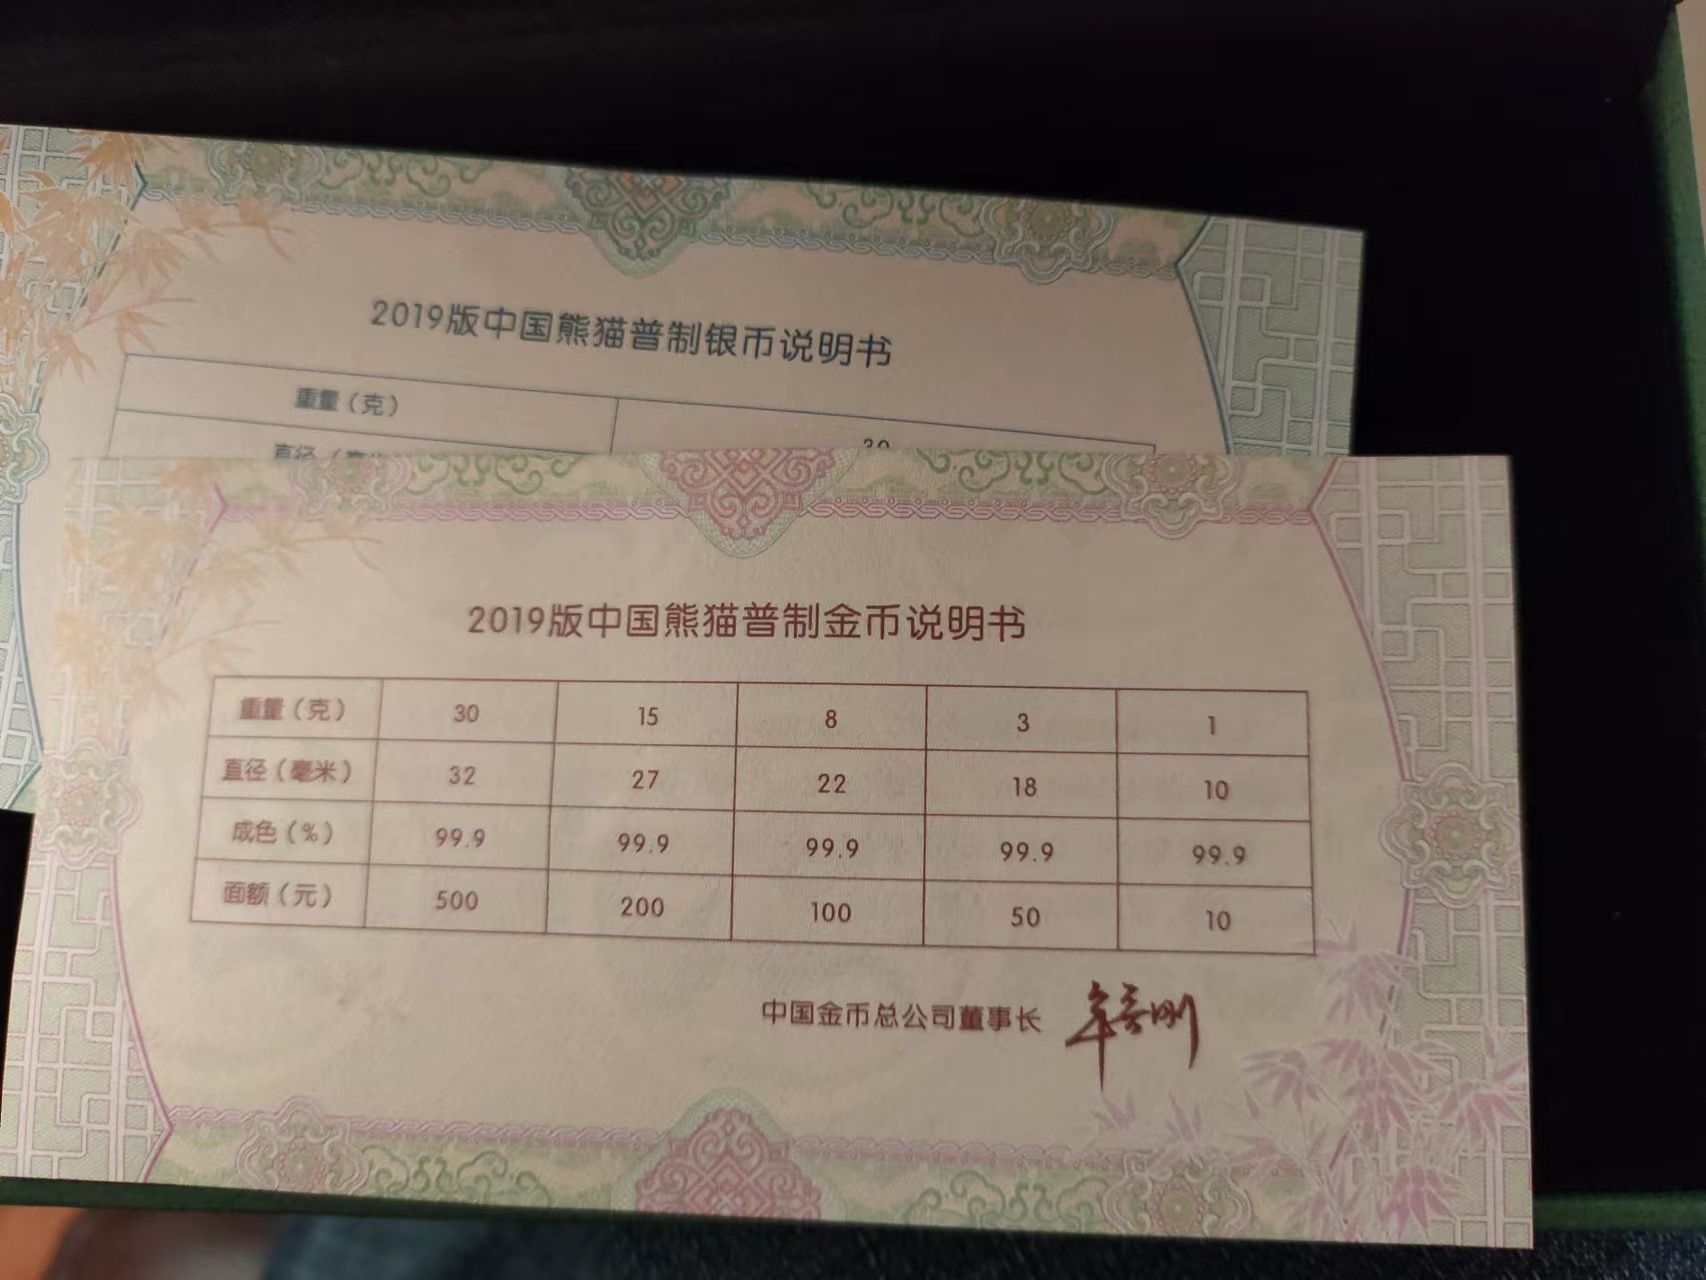 2019版中国熊猫普制银币说明书
重量（克） 30
直径（毫米
2019版中国熊猫普制金币说明书
重量（克） 30 15 8 3 1
直径（毫米） 32 27 22 18 10
成色（%） 99.9 99.9 99.9 99.9 99.9
面额（元） 500 200 100 50 10
中国金币总公司董事长